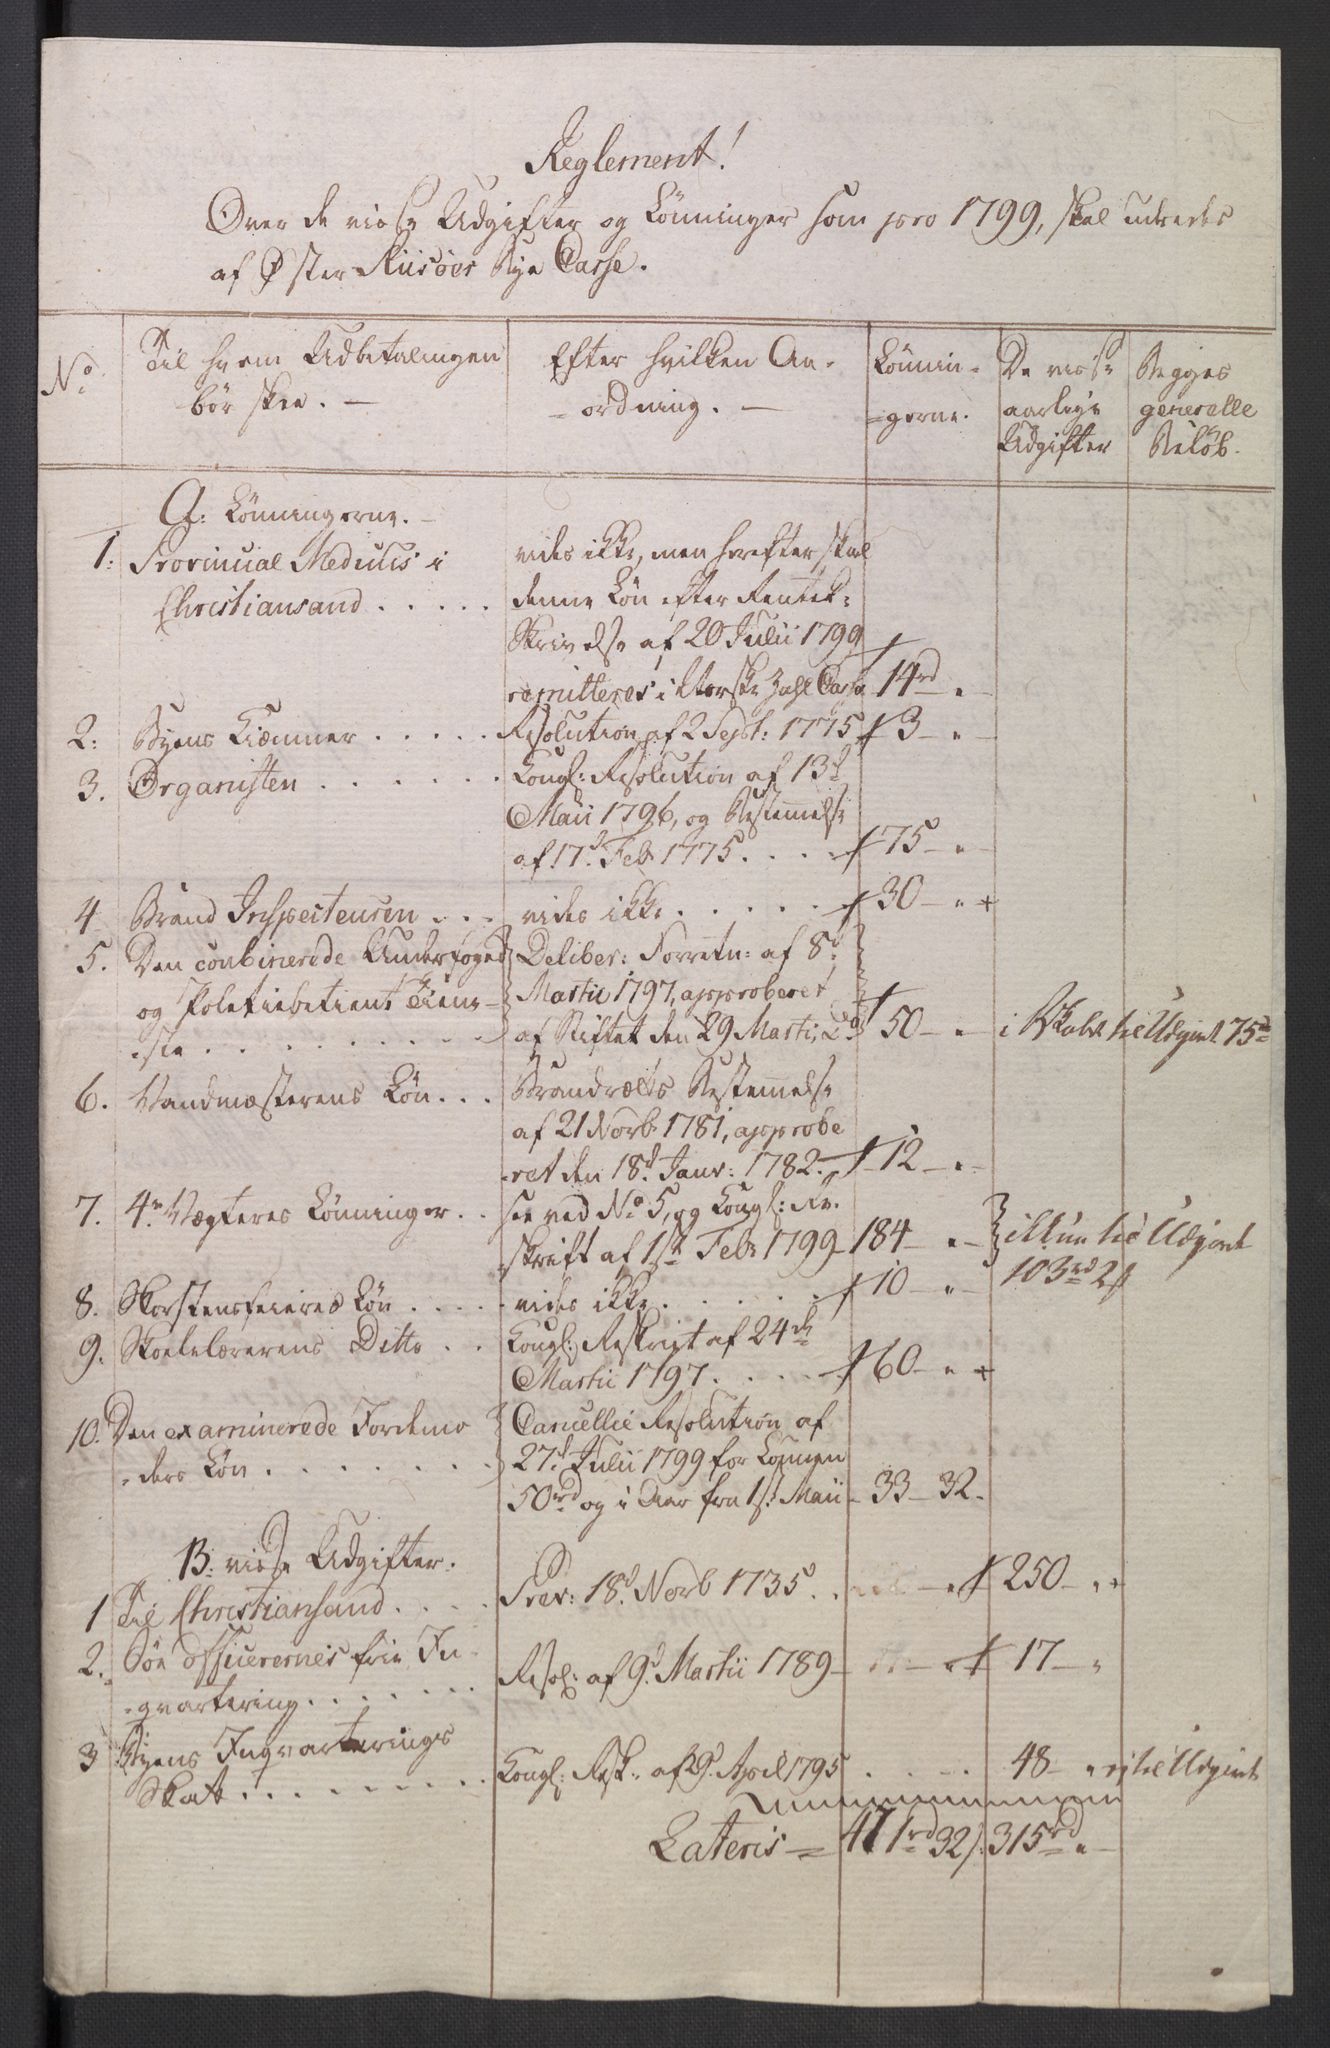 Reglement!
Over de visse Udgifter og Lönninger som pro 1799, skal udredes
af Øster Riisöers Bye Casse.
No.
Til hvem Udbetalingen
bör skee. —
Efter hvilken An-
-ordning. —
Lönnin-
-gerne.
De visse
aarlige
Udgifter
Begges
generelle
Belöb.
A: Lönningerne. —
1: Provincial Medicus i
Christiansand . . . . .
vides ikke, men herefter skal
denne Løn efter Rentek:
Skrivelse af 20 Julii 1799
remitteres i Norske Zahl Casse 14rd "
2: Byens Kiæmner . . . . . Resolution af 2 Sept: 1775 3 — "
3. Organisten . . . . . . Kongl: Resolution af 13d
Maii 1796, og Bestemmelse
af 17d. Feb. 1775 . . . . 75 — "
4 Brand Inspecteuren . . . vides ikke . . . . . 30 — " +
5. Den conbinerede Underfoged
og Politiebetient Tiene-
-ste . . . . . . . .
Deliber: Forretn: af 8d.
Martii 1797, approberet
af Stiftet den 29 Marti, Do 50 — " i Skatte til Udgivt 75rd
6. Vandmæsterens Løn . . . Brandrætts Bestemmelse
af 21 Novb. 1781, approbe
-ret den 18d. Janv: 1782. 12 — "
7. 4re Vægteres Lönninger . . see ved No 5, og Kongl: Re-
skrift af 1ste Feb. 1799 — 184 — "
til Udgivt
103rd 2ſ
8. Skorstensfeieres Løn . . . . vides ikke . . . . . 10 — "
9. Skolelærerens Ditto . . Kongl: Reskript af 24de
Martii 1797 . . . . 60 — " +
10. Den examinerede Jordemo
-ders Løn . . . . . . .
Cancellie Resolution af
27d. Julii 1799 for Lønnen
50rd og i Aar fra 1ste Maii — 33 — 32 —
B: visse Udgifter.
1 Til Christiansand . . . . Prov: 18d. Novb 1735 . . 250 — " +
2. Söe officerernes frie In-
-qvartering . . . . . . .
Resol: af 9d. Martii 1789 — 17 — "
3 Byens Inqvarterings
Skat . . . . . . . . .
Kongl: Resk: af 29d April 1795 . . . . 48 — " til Udgivt
Lateris = 471rd 32ſ: 315rd "